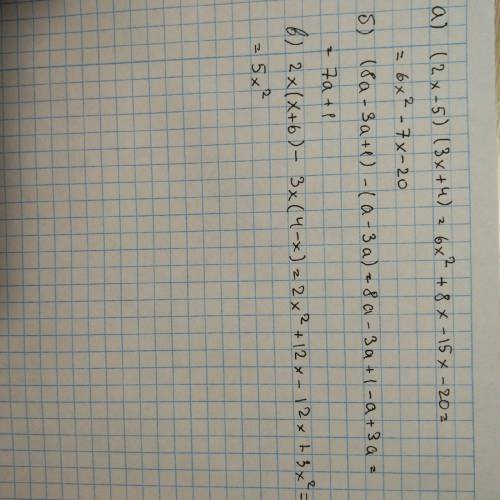 а) (2x-5)(3x+4)=6x²+8x-15x-20=
=6x²-7x-20
б) (8a-3a+1)-(a-3a)=8a-3a+1-a+3a=
=7a+1
в) 2x(x+6)-3x(4-x)=2x²+12x-12x+3x²=
=5x²